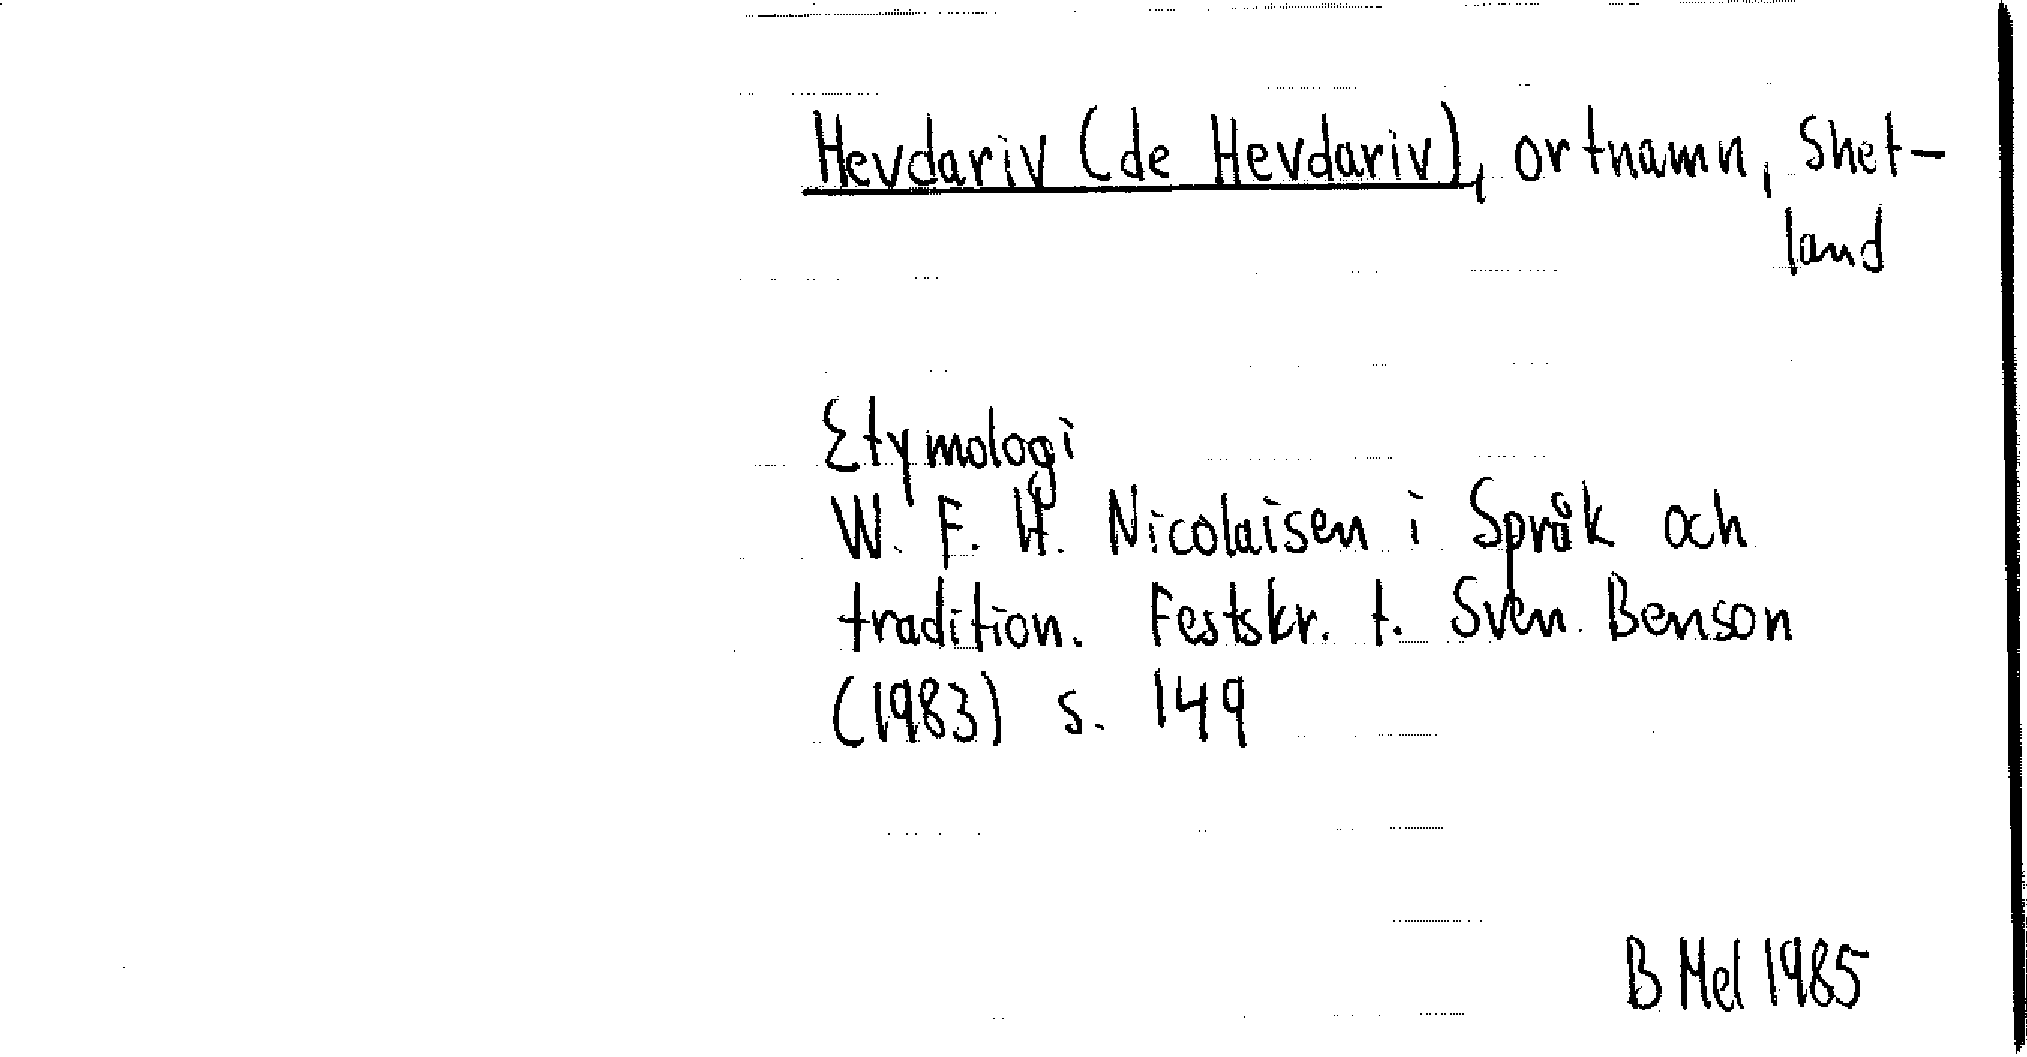 Hevdariv (de Hevdariv), ortnamn, Shet-
land
Etymologi
W. F. H. Nicolaisen i Språk och
tradition. Festskr. t. Sven Benson
(1983) s. 149
B Mel 1985